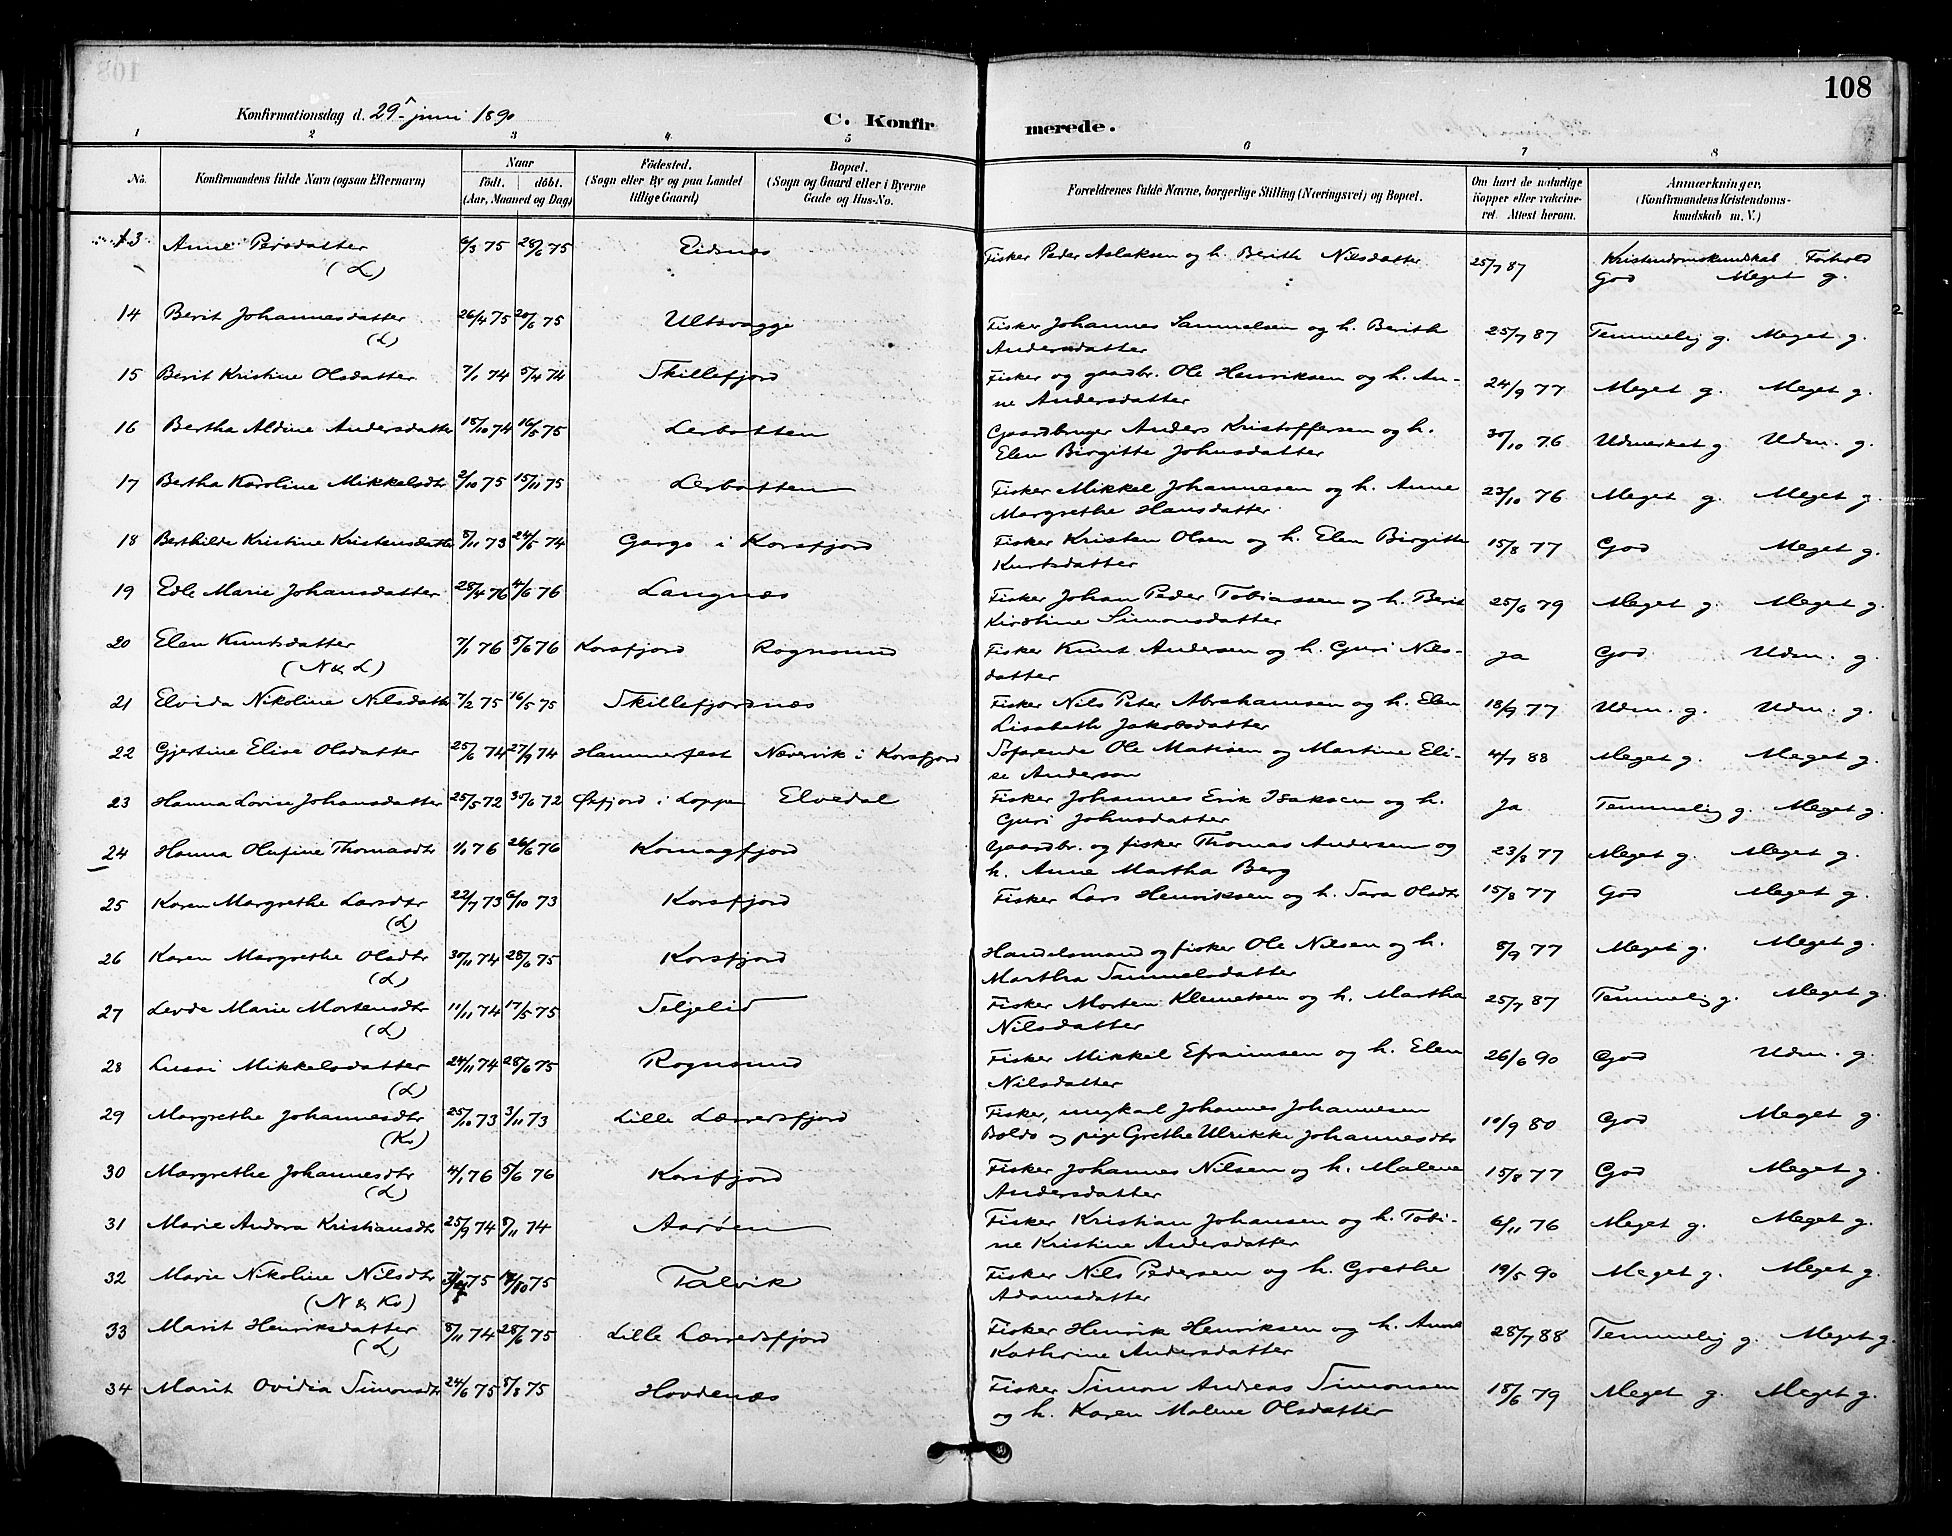 108
Konfirmationsdag d. 29 juni 1890
C. Konfirmerede.
1 2 3 4 5 6 7 8
No. | Konfirmandens fulde Navn (ogsaa Efternavn) | Naar födt. | döbt. (Aar, Maaned og Dag) | Födested. (Sogn eller By og paa Landet tillige Gaard) | Bopæl. (Sogn og Gaard eller i Byerne Gade og Hus-No. | Forældrenes fulde Navne, borgerlige Stilling (Næringsvei) og Bopæl. | Om havt de naturlige Kopper eller vakcineret. Attest herom. | Anmærkninger. (Konfirmandens Kristendomskundskab m. V.)
Kristendomskundskab Forhold
13 Anne Persdatter (L) 6/3 75 28/6 75 Eidsnes Fisker Peder Aslaksen og h. Berith Nilsdatter 25/7 87 God Meget g.
14 Berit Johannesdatter (L) 26/4 75 20/6 75 Ultsvagge Fisker Johannes Samuelsen og h. Berith
Andersdatter 25/7 87 Temmelig g. Meget g.
15 Berit Kristine Olsdatter 7/1 74 5/4 74 Skillefjord Fisker og gaardbr. Ole Henriksen og h. An-
ne Andersdatter 24/9 77 Meget g. Meget g.
16 Bertha Aldine Andersdatter 18/10 74 16/5 75 Lerbotten Gaardbruger Anders Kristoffersen og h.
Elen Birgitte Johnsdatter 30/10 76 Udmerket g. Udm. g.
17 Bertha Karoline Mikkelsdtr 2/10 75 15/11 75 Lerbotten Fisker Mikkel Johannesen og h. Anne
Margrethe Hansdatter 23/10 76 Meget g. Meget g.
18 Berthilde Kristine Kristensdatter 8/11 73 24/5 74 Gargo i Korsfjord Fisker Kristen Olsen og h. Elen Birgitte
Knutsdatter 15/8 77 God Meget g.
19 Edle Marie Johansdatter 28/4 76 4/6 76 Langnes Fisker Johan Peder Tobiassen og h. Berit
Kirstine Simonsdatter 25/6 79 Meget g. Meget g.
20 Elen Knutsdatter (N & L) 7/1 76 5/6 76 Korsfjord Rognsund Fisker Knut Andersen og h. Guri Nils-
datter ja God Udm. g.
21 Elvida Nikoline Nilsdatter 7/2 75 16/5 75 Skillefjordnes Fisker Nils Peter Abrahamsen og h. Elen
Lisabeth Jakobsdatter 18/9 77 Udm. g. Udm. g.
22 Gjertine Elise Olsdatter 25/6 74 27/9 74 Hammerfest Nevervik i Korsfjord Söfarende Ole Matisen og Martine Eli-
se Anderson 4/7 88 Meget g. Meget g.
23 Hanna Lovise Johansdatter 25/5 72 30/6 72 Øxfjord i Loppen Elvedal Fisker Johannes Erik Isaksen og h.
Guri Johnsdatter Ja Temmelig g. Meget g.
24 Hanna Olufine Thomasdtr 1/1 76 26/6 76 Komagfjord Gaardbr. og fisker Thomas Andersen og
h. Anne Martha Berg 23/8 77 Meget g. Meget g.
25 Karen Margrethe Larsdtr (L) 22/7 73 6/10 73 Korsfjord Fisker Lars Henriksen og h. Sara Olsdtr 15/8 77 God Meget g.
26 Karen Margrethe Olsdtr (L) 30/11 74 28/6 75 Korsfjord Handelsmand og fisker Ole Nilsen og h.
Martha Samuelsdatter 8/9 77 Meget g. Meget g.
27 Levde Marie Mortensdtr (L) 11/11 74 17/5 75 Seljelid Fisker Morten Klemetsen og h. Martha
Nilsdatter 25/7 87 Temmelig g. Meget g.
28 Lussi Mikkelsdatter (L) 24/11 74 28/6 75 Rognsund Fisker Mikkel Efraimsen og h. Elen
Nilsdatter 26/6 90 God Udm. g.
29 Margrethe Johannesdtr (Kv) 25/10 73 3/11 73 Lille Lærredsfjord Fisker, ungkarl Johannes Johannesen
Boldo og pige Grethe Ulrikke Johannesdtr 10/9 80 God Meget g.
30 Margrethe Johannesdtr (L) 4/1 76 5/6 76 Korsfjord Fisker Johannes Nilsen og h. Malene
Andersdatter 15/8 77 God Meget g.
31 Marie Andora Kristiansdtr 25/9 74 8/11 74 Aaröen Fisker Kristian Johansen og h. Tobi-
ne Kristine Andersdatter 6/11 76 Meget g. Meget g.
32 Marie Nikoline Nilsdtr (N & Kv) 75 75 Talvik Fisker Nils Pedersen og h. Grethe
Adamsdatter 19/5 90 Meget g. Meget g.
33 Marit Henriksdatter (L) 8/11 74 28/6 75 Lille Lærredsfjord Fisker Henrik Henriksen og h. Anne
Kathrine Andersdatter 28/7 88 Temmelig g. Meget g.
34 Marit Ovidia Simonsdtr 24/6 75 8/8 75 Hovdenæs Fisker Simon Andreas Simonsen
og h. Karen Malene Olsdatter 18/6 79 Meget g. Meget g.